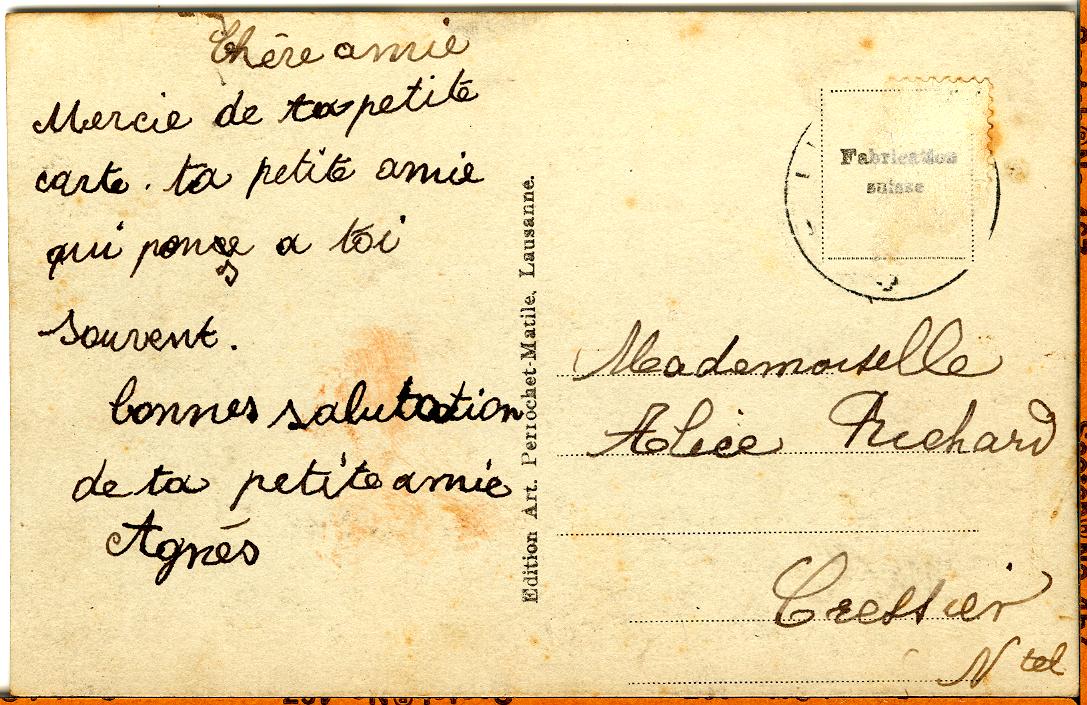 Chère amie
Mercie de ta petite
carte. ta petite amie
qui ponse a toi
souvent.
bonnes salutation
de ta petite amie
Agnès
Edition Art. Perrochet-Matile, Lausanne.
Fabrication
suisse
Mademoiselle
Alice Richard
Cressier
N tel